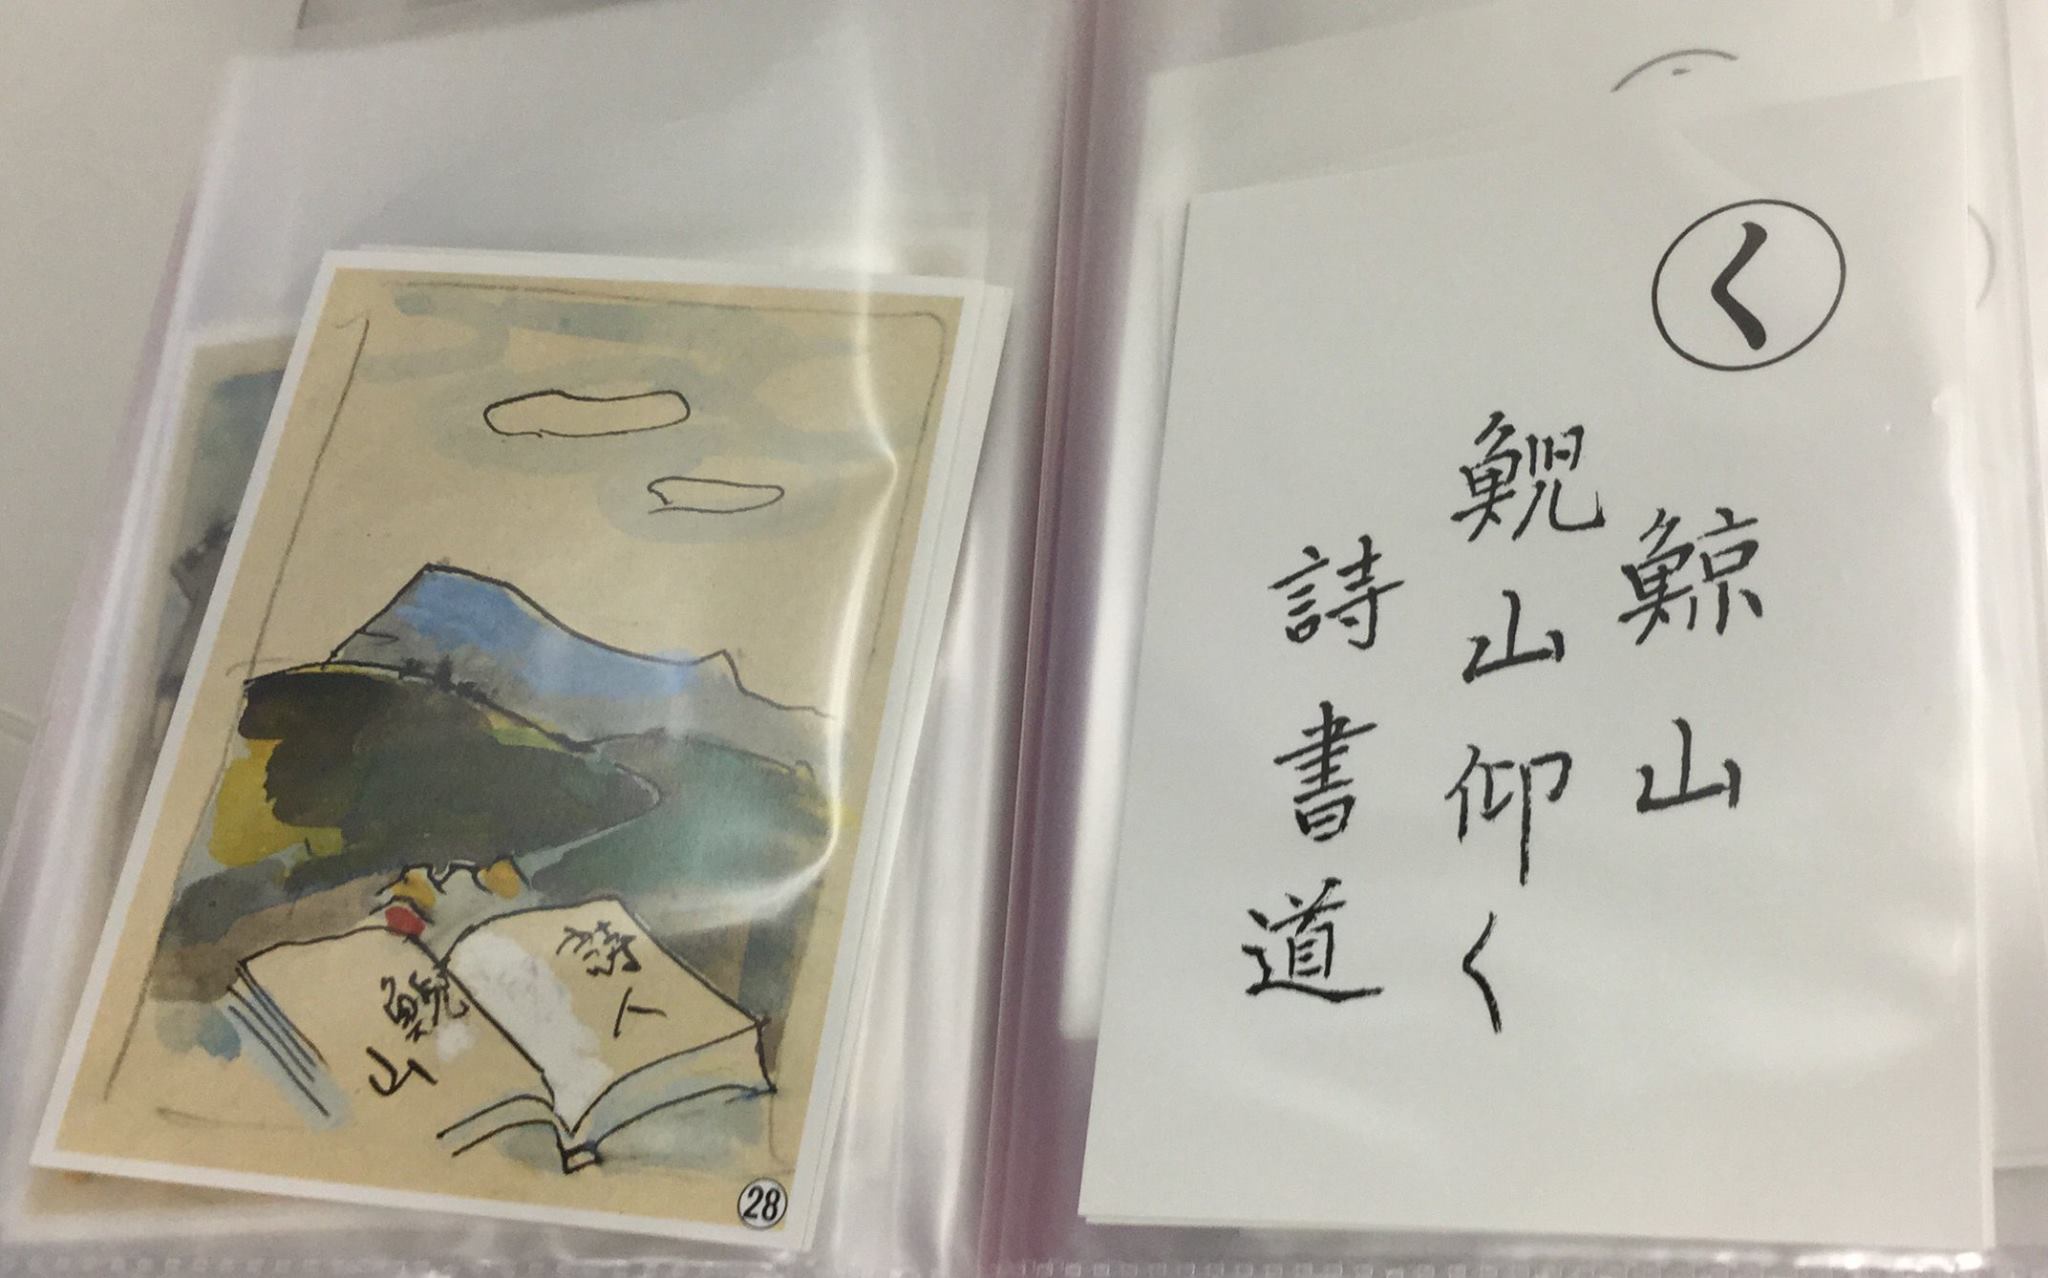 く
鯨山
鯢山仰く
詩書道
詩人
鯢
山
28